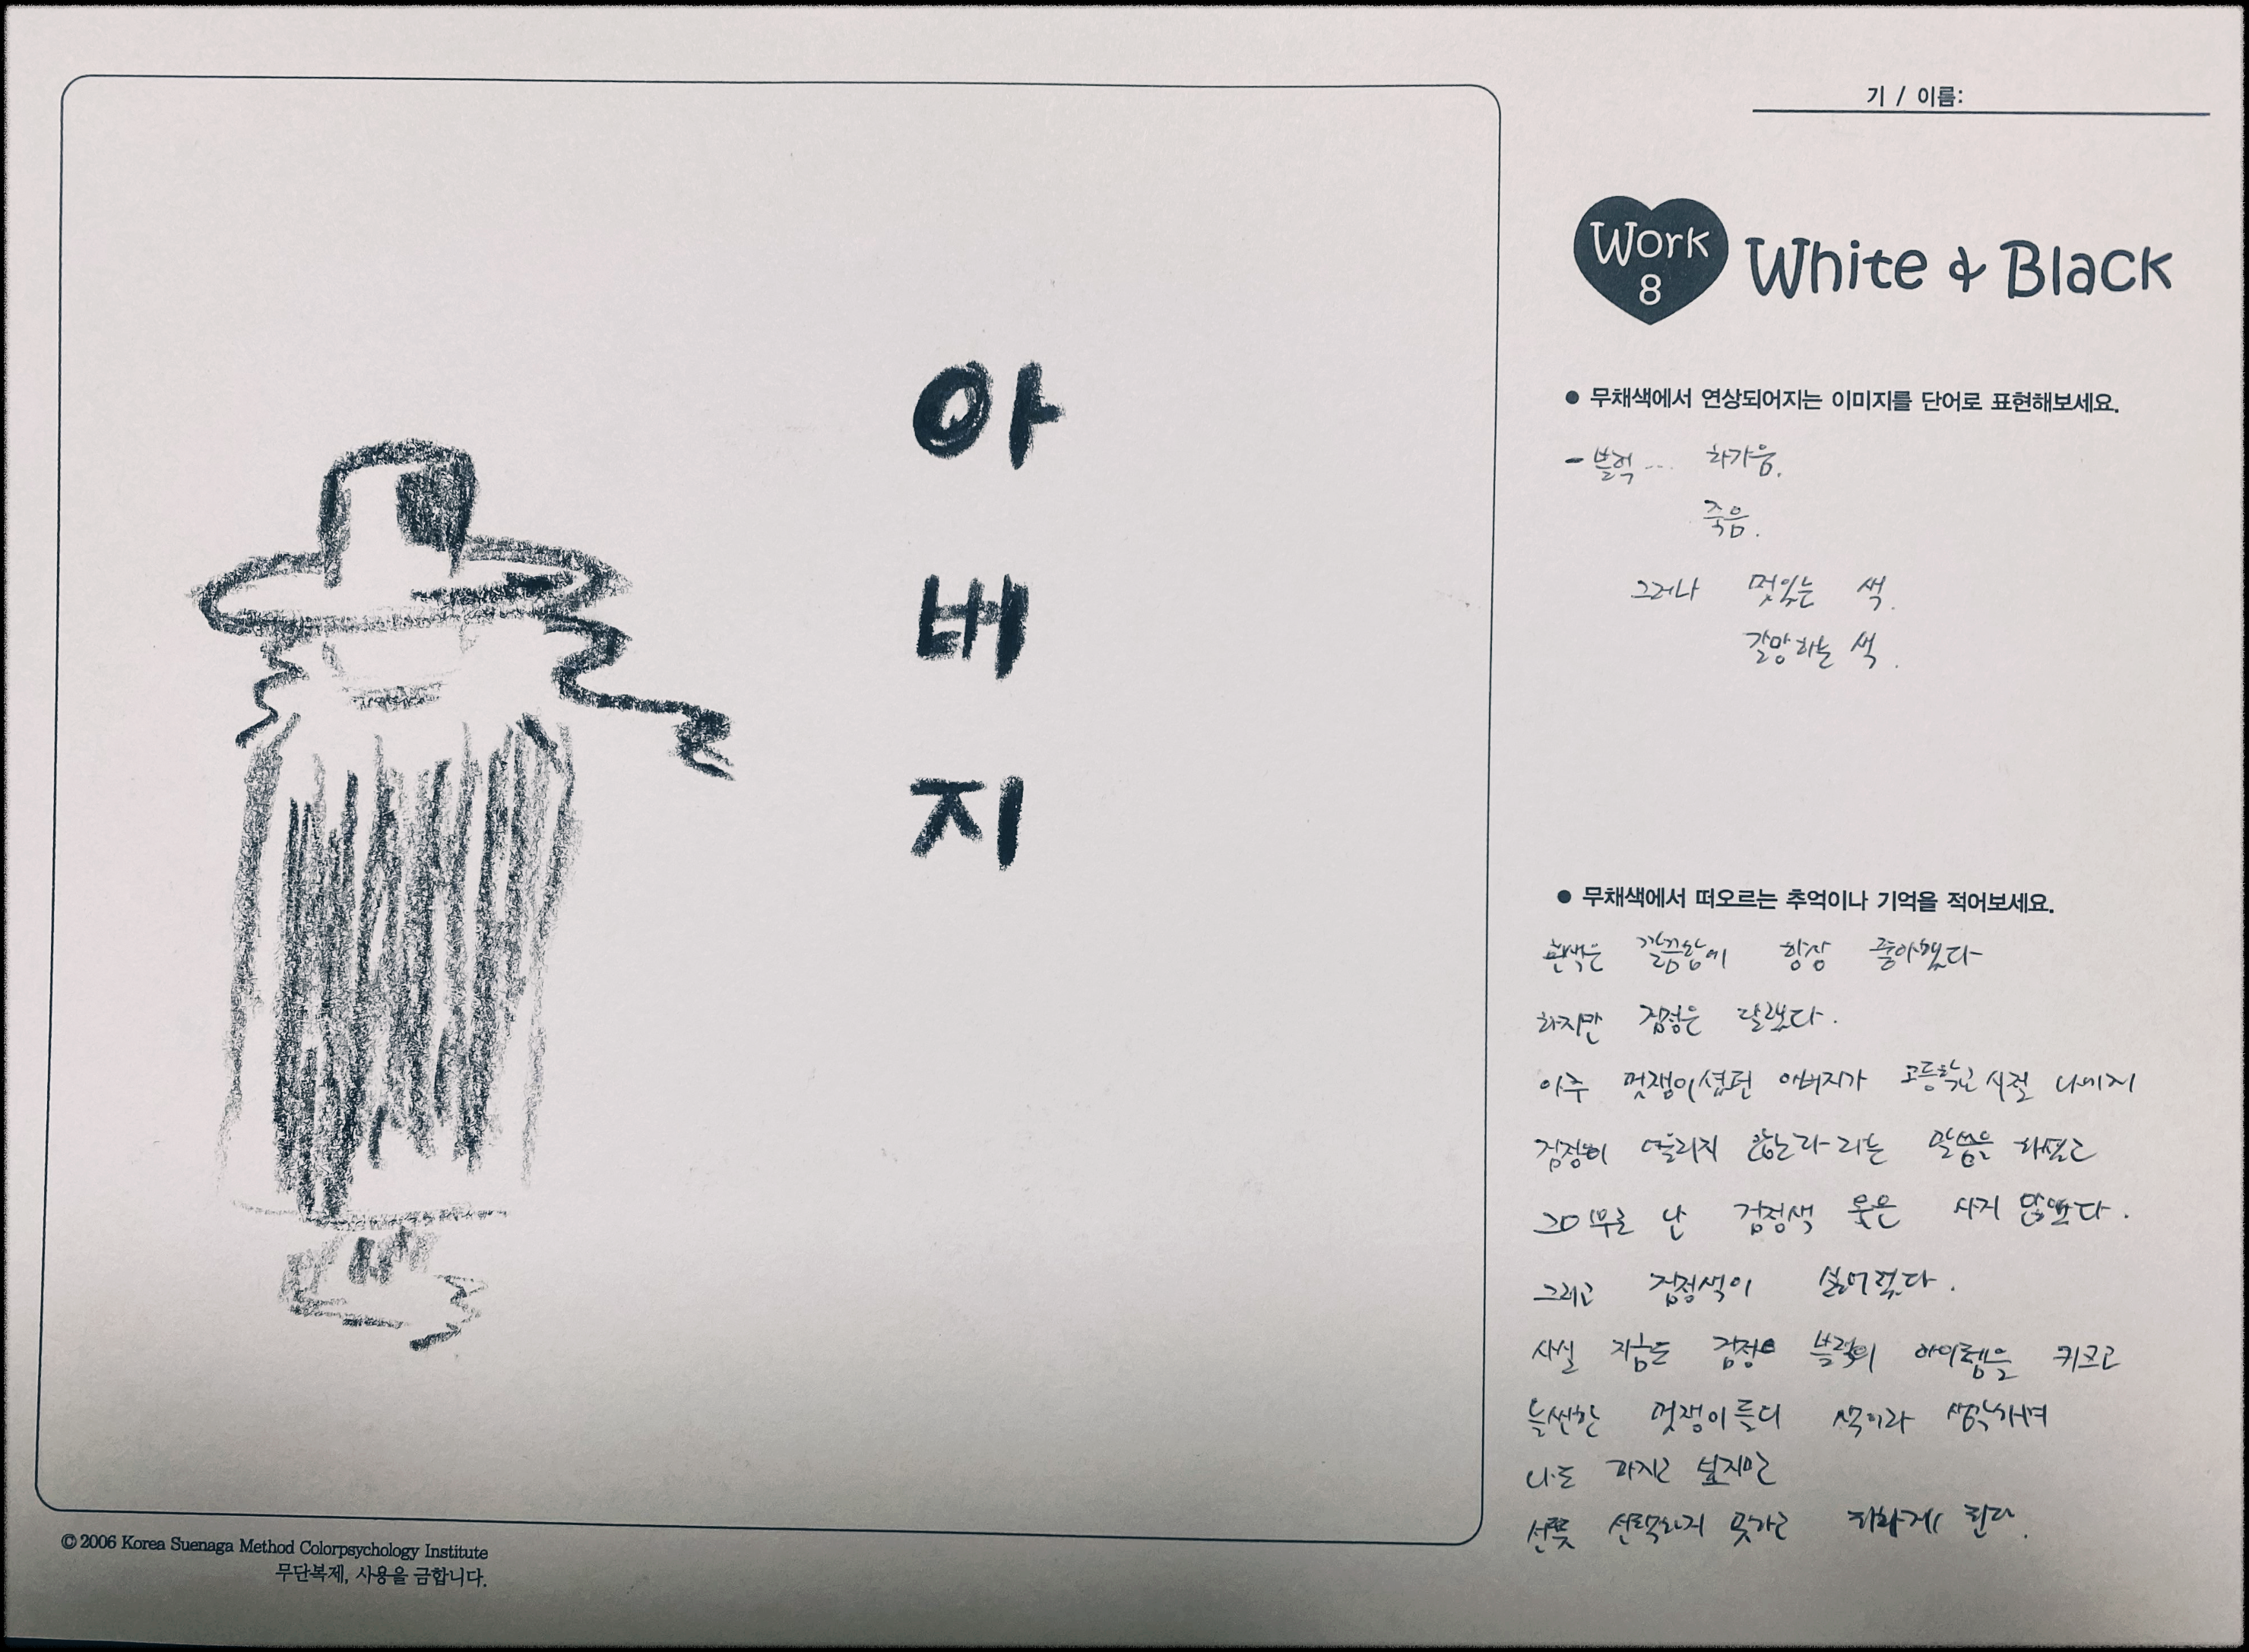 아
버
지
기 / 이름:
Work
8
White & Black
● 무채색에서 연상되어지는 이미지를 단어로 표현해보세요.
- 블랙... 차가움.
죽음.
그러나 멋있는 색.
갈망하는 색.
● 무채색에서 떠오르는 추억이나 기억을 적어보세요.
흰색은 깔끔함에 항상 좋아했다
하지만 검정은 달랐다.
아주 멋쟁이셨던 아버지가 고등학교 시절 나에게
검정이 어울리지 않는다 라는 말씀을 하셨고
그 이후로 난 검정색 옷은 사지 않았다.
그리고 검정색이 싫어졌다.
사실 지금도 검정 블랙의 아이템을 키크고
늘씬한 멋쟁이들의 색이라 생각하며
나도 하지만
선뜻 선택하지 못하고 피하게 된다.
© 2006 Korea Suenaga Method Colorpsychology Institute
무단복제, 사용을 금합니다.